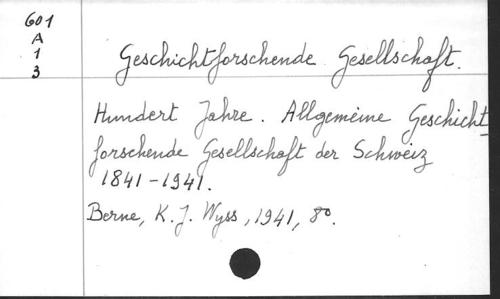 601
A
1
3
Geschichtforschende Gesellschaft.
Hundert Jahre. Allgemeine Geschicht-
forschende Gesellschaft der Schweiz
1841-1941.
Berne, K. J. Wyss, 1941, 8º.